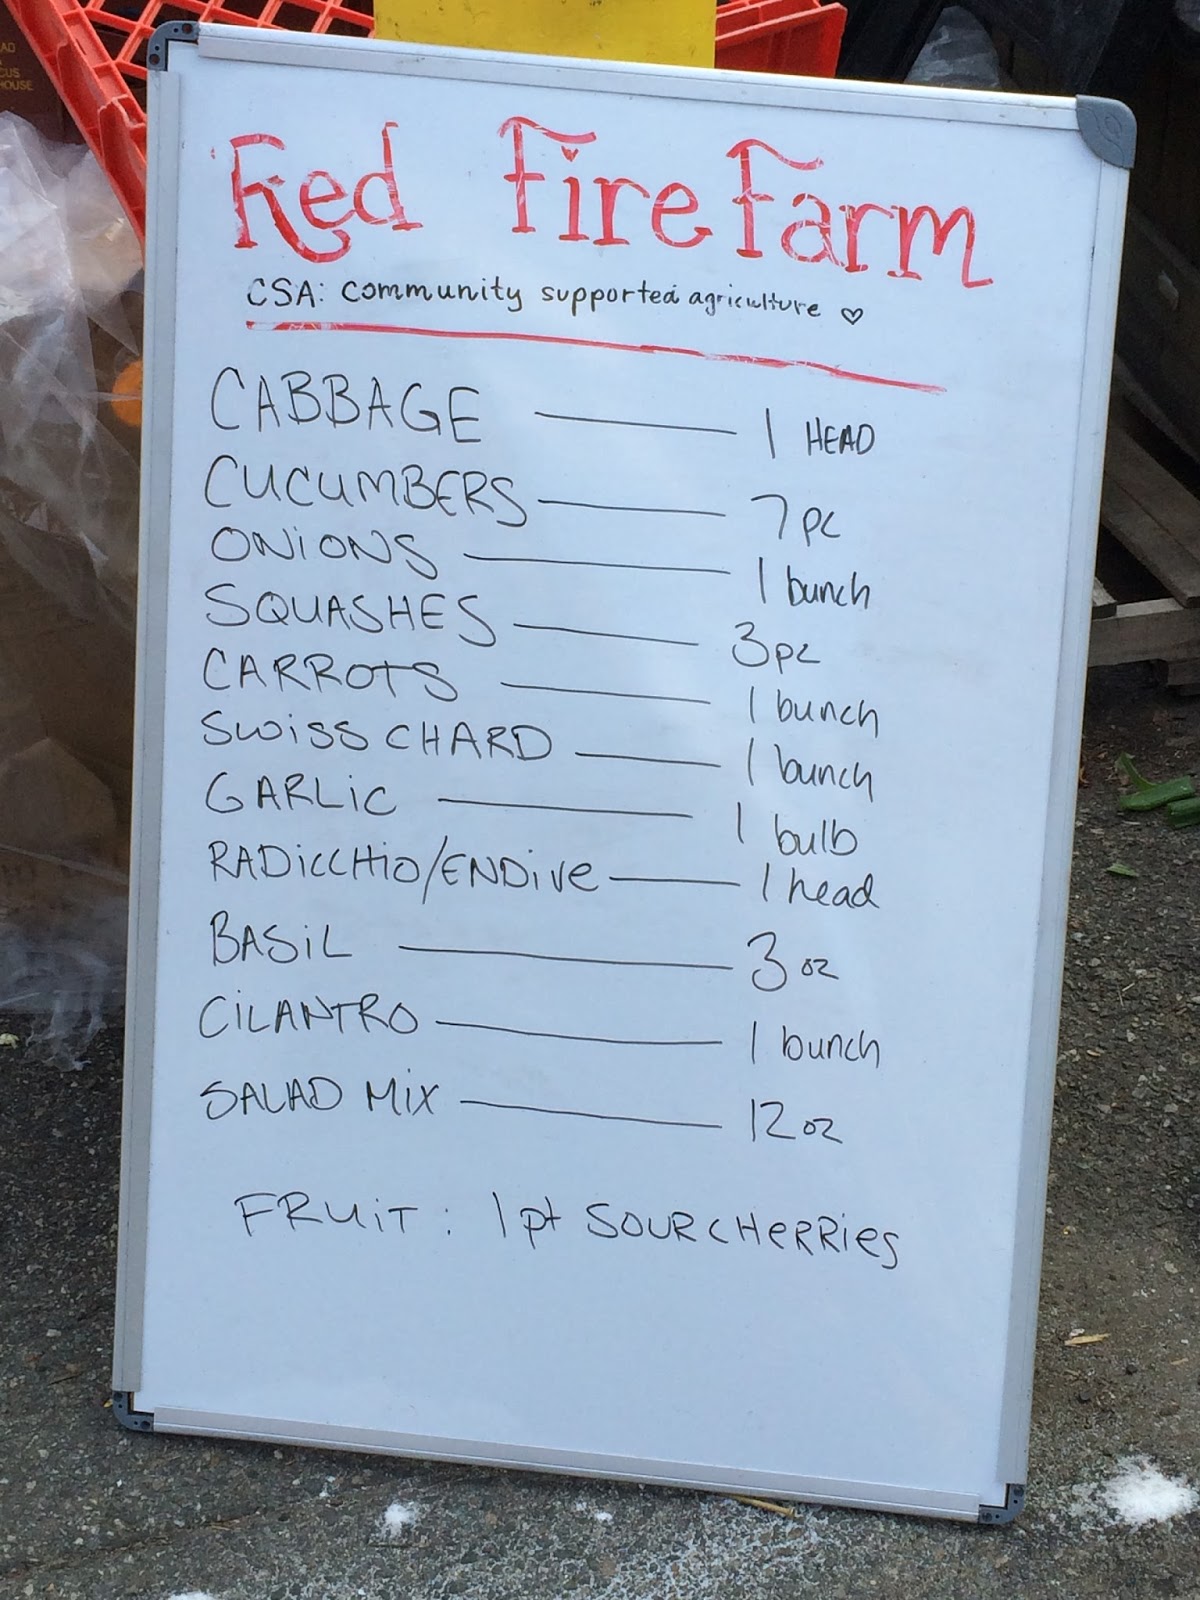 Red Fire Farm
CSA: Community supported agriculture ♡
CABBAGE — 1 HEAD
CUCUMBERS — 7 pc
ONIONS — 1 bunch
SQUASHES — 3 pc
CARROTS — 1 bunch
SWISS CHARD — 1 bunch
GARLIC — 1 bulb
RADICCHIO/ENDIVE — 1 head
BASIL — 3 oz
CILANTRO — 1 bunch
SALAD MIX — 12 oz
FRUIT: 1 pt SOUR CHERRIES